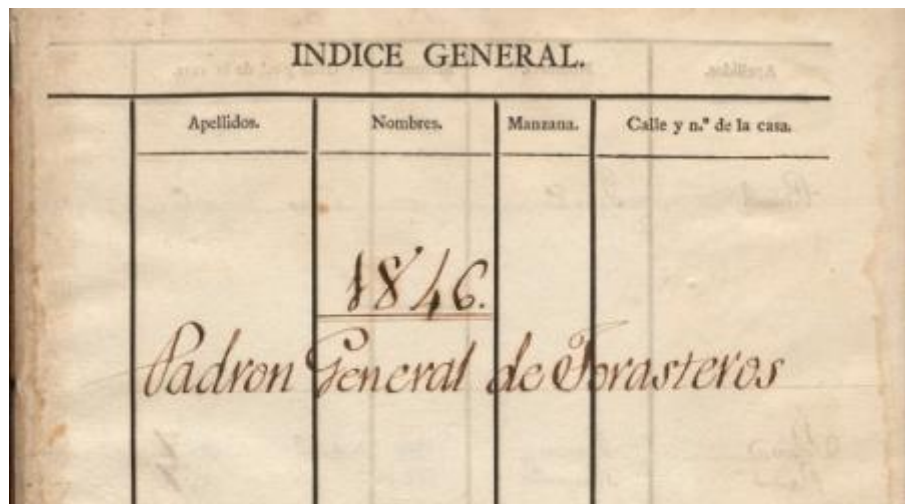 INDICE GENERAL.
Apellidos. Nombres. Manzana. Calle y n.º de la casa.
1846.
Padron General de Forasteros